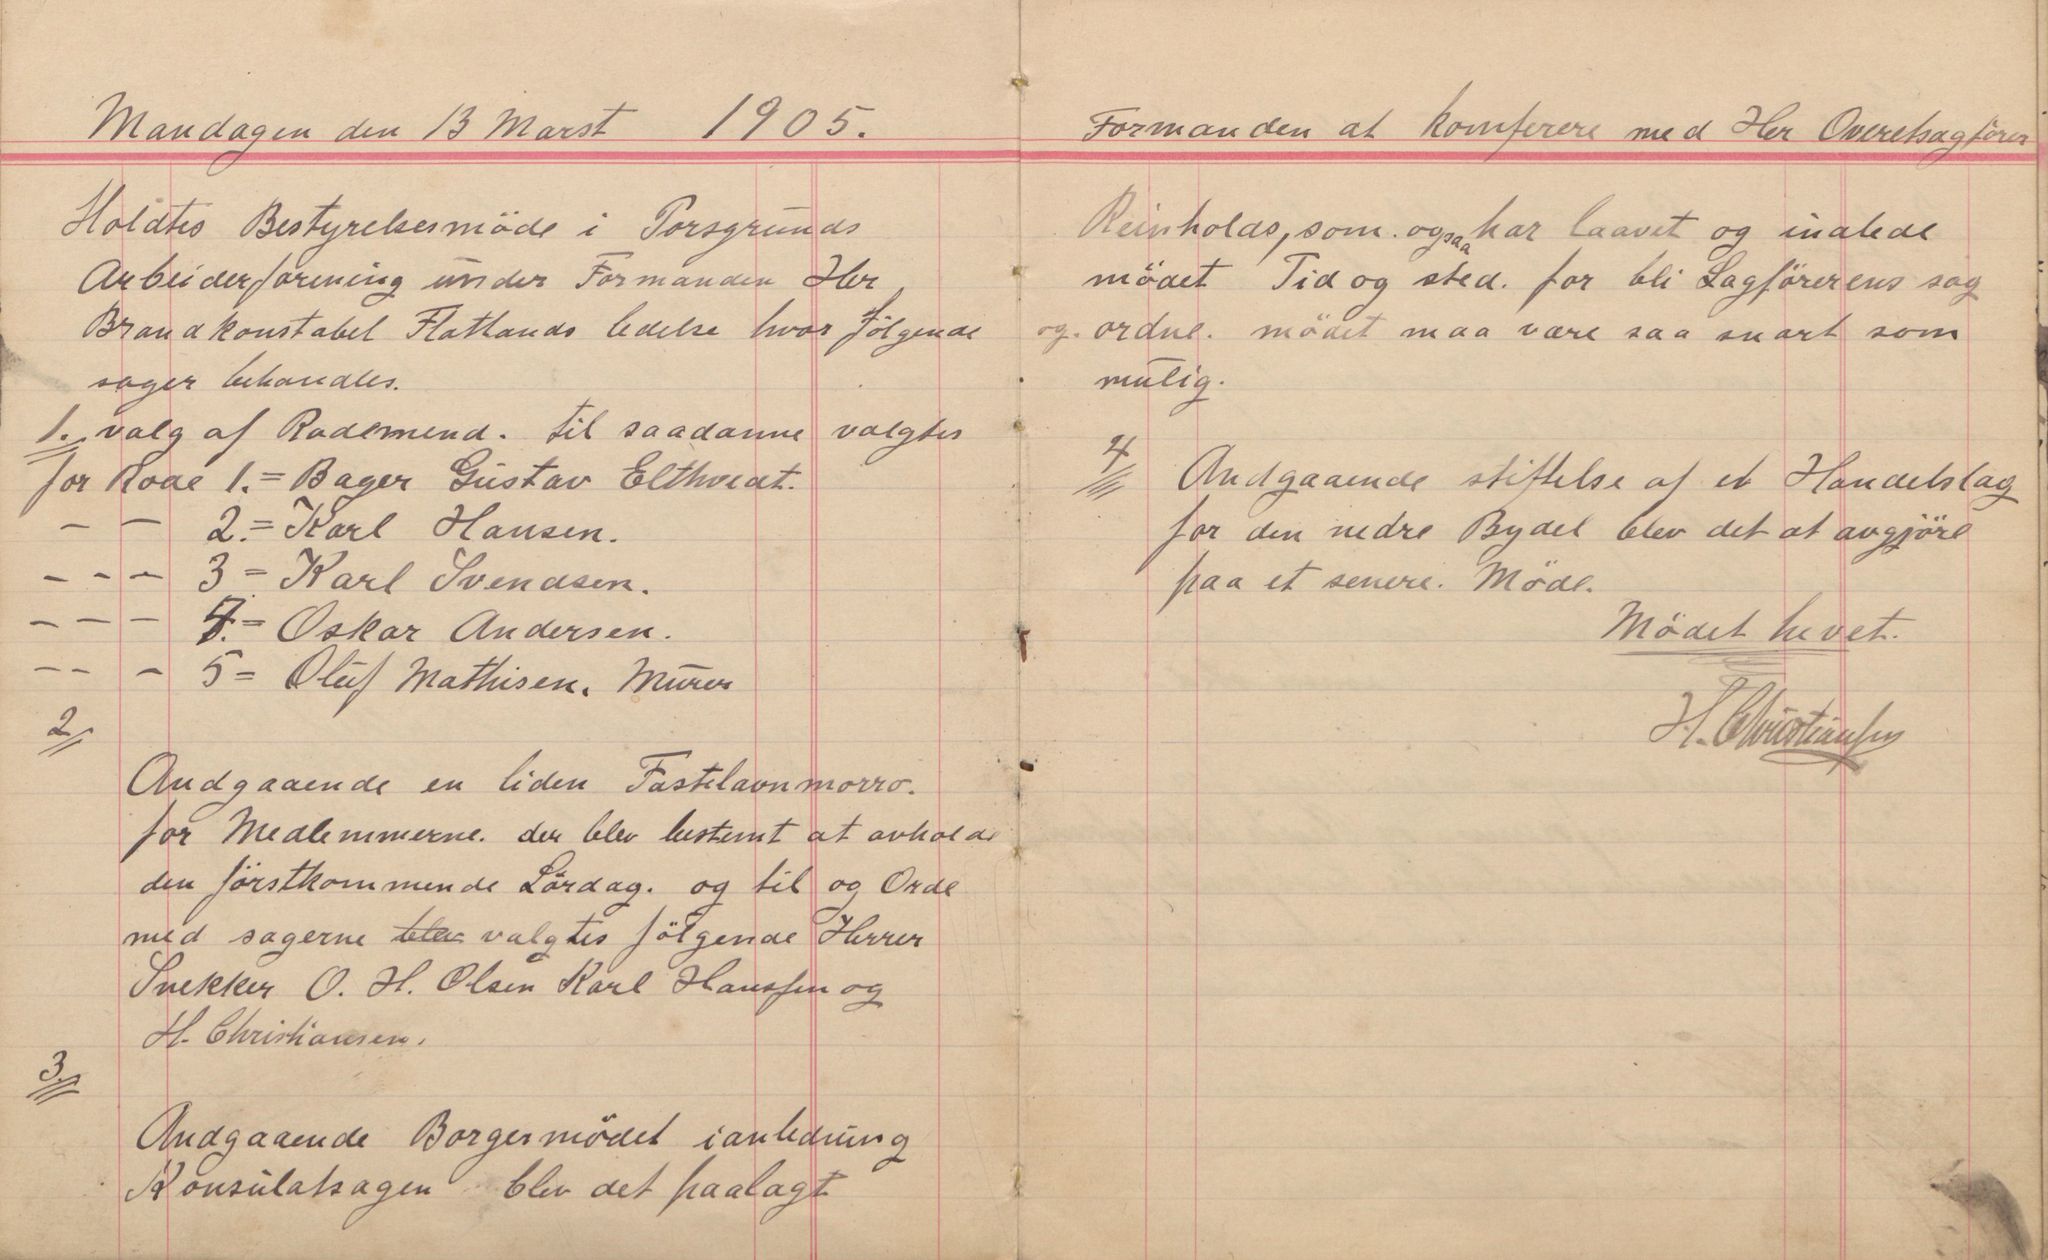 Mandagen den 13 Marst 1905.
Holdtes Bestyrelsesmöde i Porsgrunds
Arbeiderforening under Formanden Her
Brandkonstabel Flatlands ledelse hvor fölgende
sager behandles.
1. valg af Rodemend. til saadanne valgtes
for Rode 1. = Bager Gustav Elthvedt.
— — 2. = Karl Hansen.
— — — 3 = Karl Svendsen.
— — — 4. = Oskar Andersen.
— — — 5 = Oluf Mathisen. Murer
2
Andgaaende en liden Fastelavnmorro.
for Medlemmerne. der blev bestemt at avholde
den förstkommende Lördag. og til og Orde
med sagerne blev valgtes fölgende Herrer
Snekker O. H. Olsen Karl Hanssen og
H. Christiansen.
3.
Andgaaende Borgermödet ianledning
Konsulatsagen blev det paalagt
Formanden at komferere med Her Overetsagförer
Reinholds, som. ogsaa har laavet og inalede
mödet Tid og sted. for bli Lagförerens sag
og. ordne. mödet maa være saa snart som
mulig.
4
Andgaaende stiftelse af et Handelslag
for den nedre Bydel blev det at avgjöre
paa et senere. Möde.
Mödet hevet.
H. Christiansen